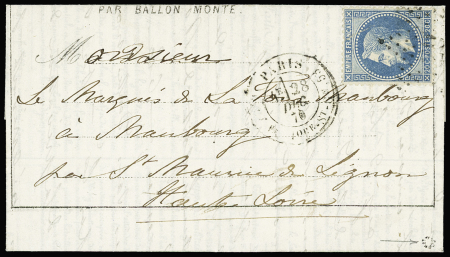 PAR BALLON MONTÉ.
Monsieur
Le Marquis de La Tour Maubourg
à Maubourg
par St Maurice de Lignon
Haute Loire
EMPIRE FRANÇAIS
PARIS
28
DEC
70